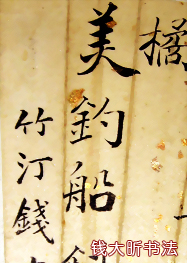 美釣船
竹汀錢
钱大昕书法